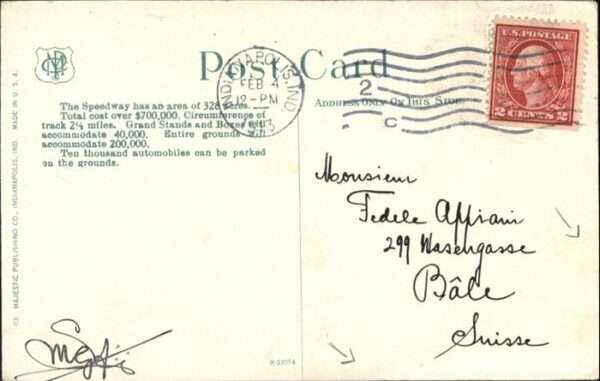 Post Card
INDIANAPOLIS, IND.
FEB 4
12-PM
2
C
U.S. POSTAGE
2 CENTS 2
The Speedway has an area of 328 acres.
Total cost over $700,000. Circumference of
track 2½ miles. Grand Stands and Boxes will
accommodate 40,000. Entire grounds will
accommodate 200,000.
Ten thousand automobiles can be parked
on the grounds.
ADDRESS ONLY ON THIS SIDE
Monsieur
Fedele Affriani
299 Wasengasse
Bâle
Suisse
MAJESTIC PUBLISHING CO., INDIANAPOLIS, IND. MADE IN U.S.A.